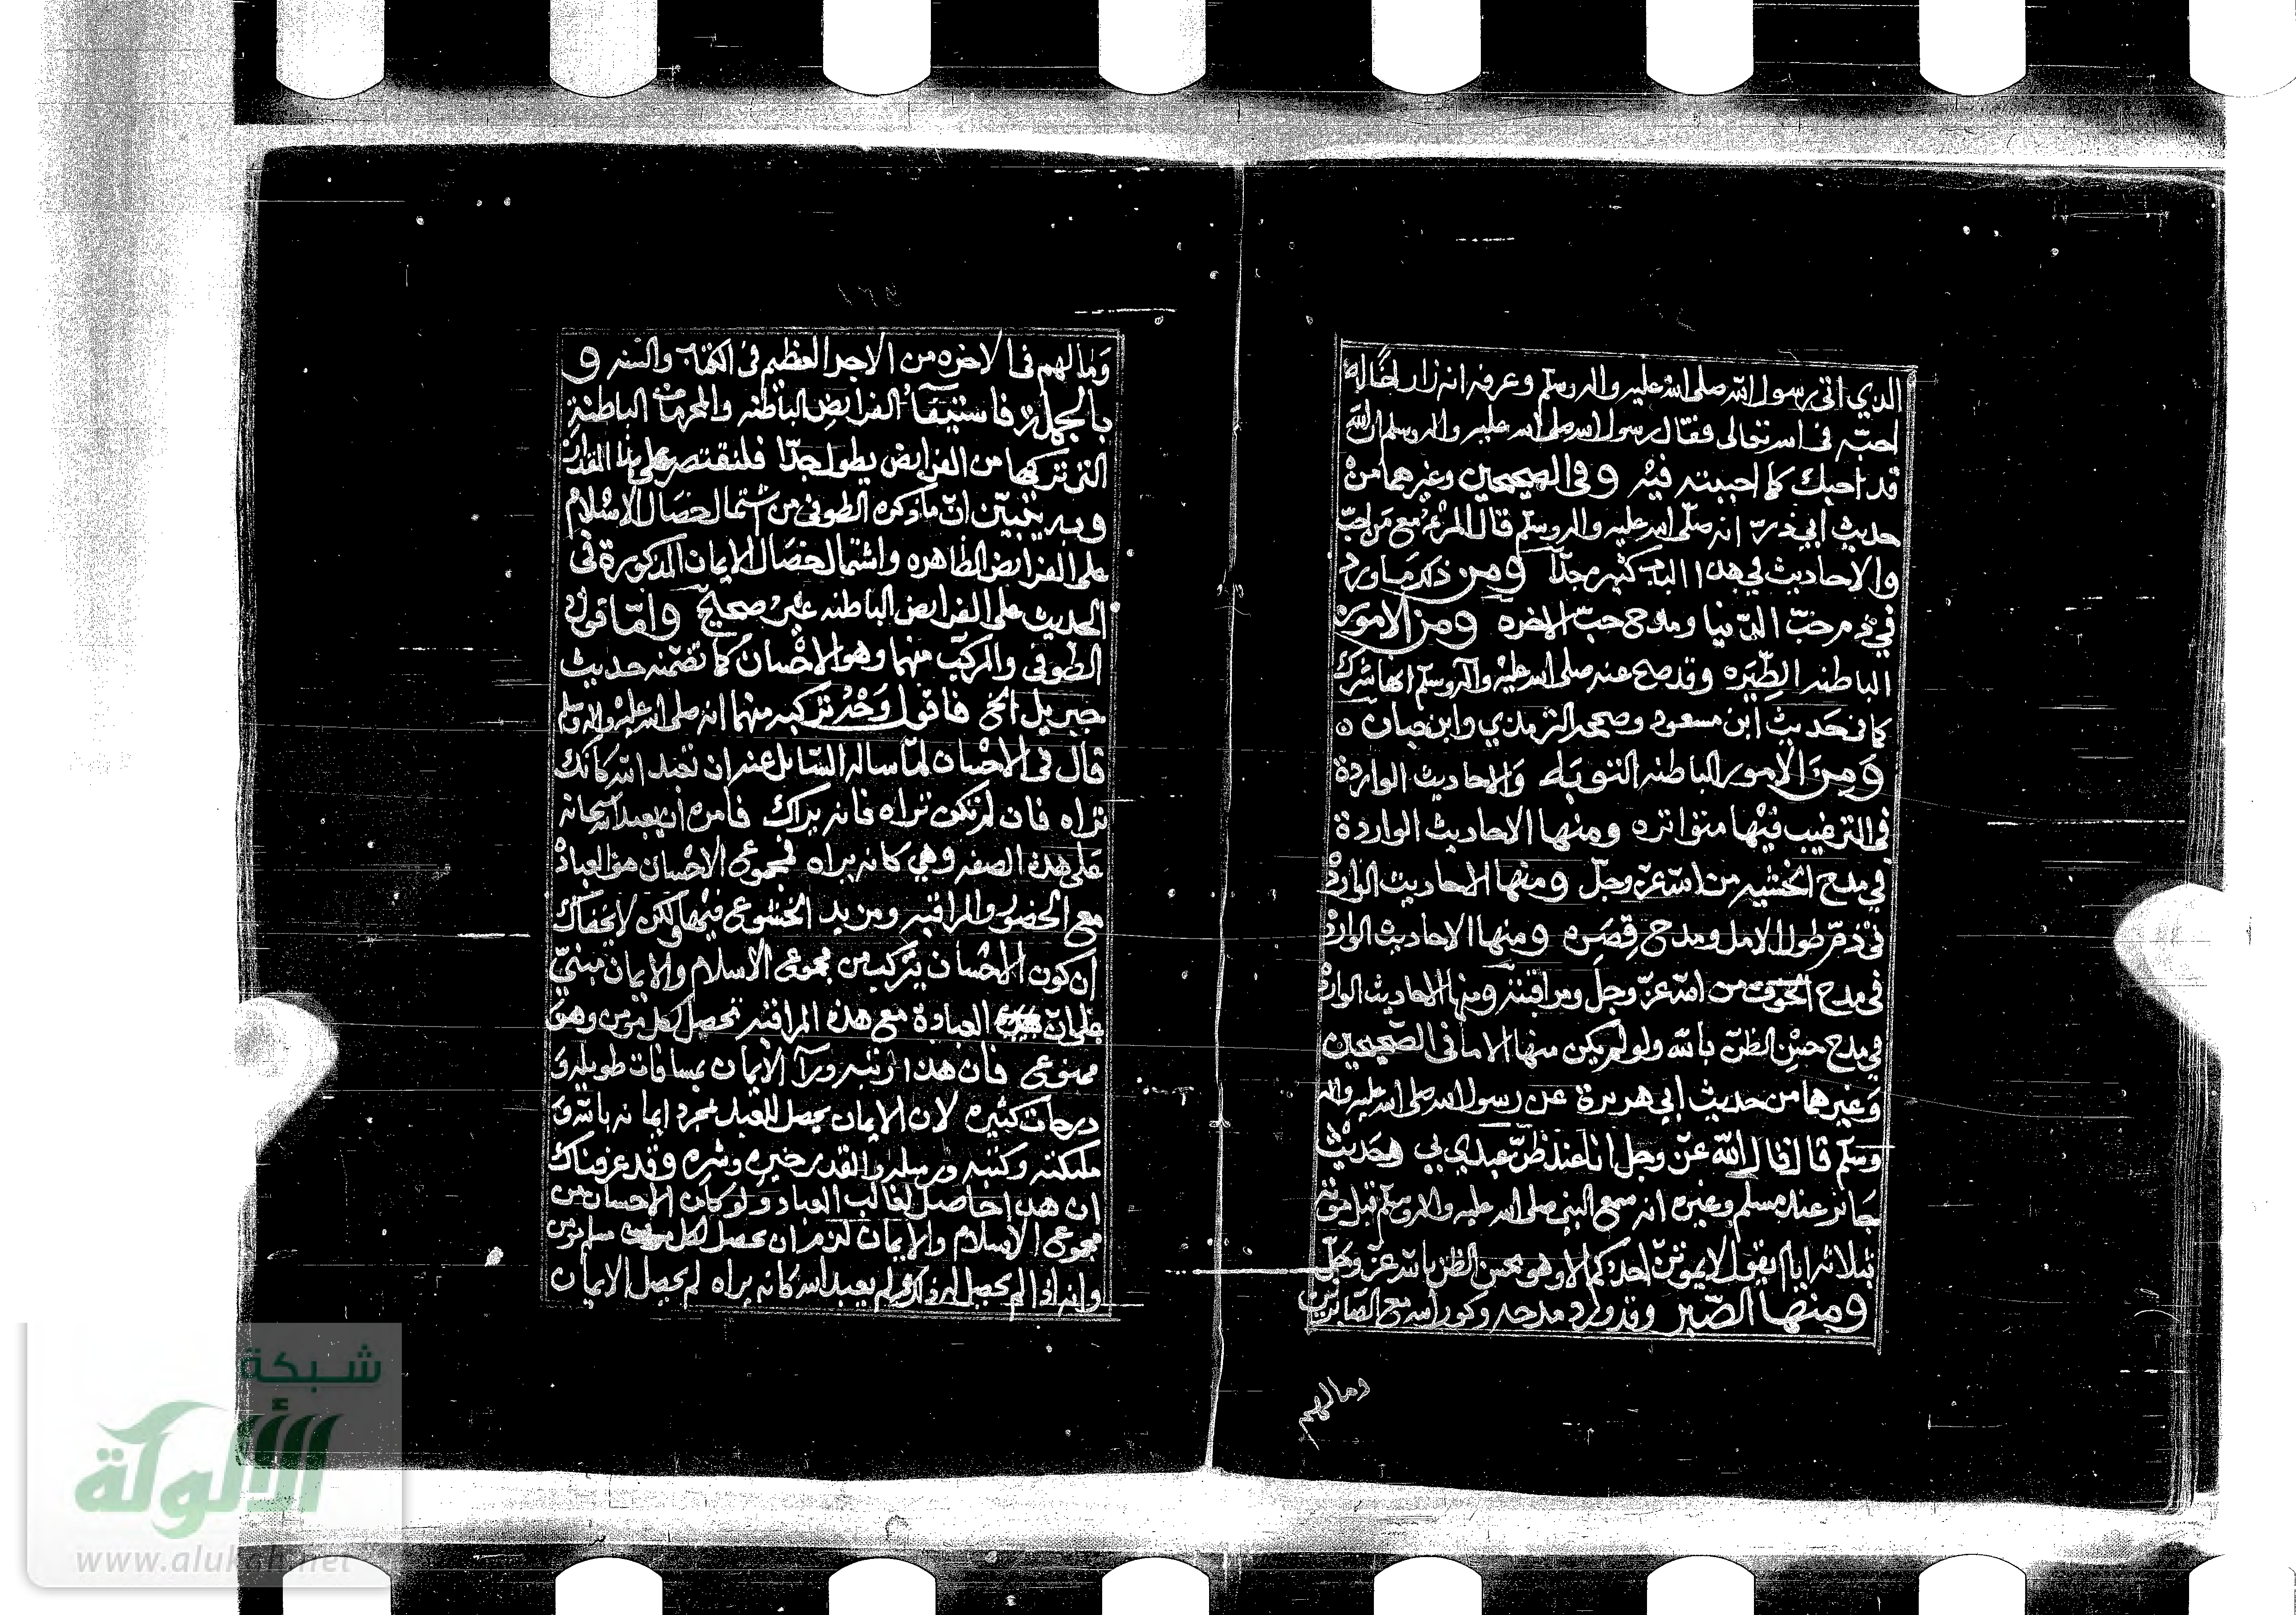 الذي اتى رسول الله صلى الله عليه واله وسلم وعرفه انه زار اخا له
احبّه فى الله تعالى فقال رسول الله صلى الله عليه واله وسلم ان الله
قد احبك كما احببته فيه وفى الصحيحين وغيرهما من
حديث ابي ذرّ انه صلى الله عليه واله وسلم قال المرء مع من احبّ
والاحاديث في هذا الباب كثيره جدّاً ومن ذلك ما ورد
في ذم حبّ الدنيا ومدح حبّ الاخره ومن الامور
الباطنه الطِّيَره وقد صح عنه صلى الله عليه وآله وسلم انها شرك
كما فى حديث ابن مسعود وصححه الترمذي وابن حبان
ومن الامور الباطنه التوبه والاحاديث الواردة
فى الترغيب فيها متواتره ومنها الاحاديث الواردة
في مدح الخشيه من الله عزّ وجلّ ومنها الاحاديث الوارده
فى ذمّ طول الامل ومدح قِصَره ومنها الاحاديث الوارده
في مدح الخوف من الله عزّ وجلّ ومراقبته ومنها الاحاديث الوارده
في مدح حسْن الظنّ بالله ولو لم يكن منها الا ما فى الصّحيحين
وَغيرهما من حديث ابي هريرة عن رسول الله صلى الله عليه واله
وسلّم قال قال الله عزّ وجل انا عند ظنّ عبدي بي وحديث
جابر عند مسلم وغيره انه سمع النبي صلى الله عليه واله وسلّم قبل موته
بثلاثه ايام يقول لا يموتنّ احدكم الا وهو يحسن الظن بالله عزّ وجلّ
ومنها الصّبر وقد ورد مدحه وكون الله مع الصّابرين
وما لهم
وَما لهم فى الاخره من الاجر العظيم فى الكتاب والسنه و
بالجمله فاستيفآء الفرايض الباطنه والمحرمات الباطنة
التى تركها من الفرايض يطول جدّا فلنقتصر على هذا المقدار
وبه يتبيّن انّ ما ذكره الطوفى من اشتمال خصال الاسْلام
على الفرايض الظاهره واشتمال خصَال الايمان المذكورة فى
الحديث على الفرايض الباطنه غير صحيح وامّا قول
الطوفى والمركّب منهما وهو الاحْسان كما تضمّنه حديث
جبريل الخ فاقول وَجْه تركيبه منهما انه صلى الله عليه واله وسلم
قال فى الاحْسان لمّا ساله السّايل عنه ان تعبد الله كانك
تراه فان لم تكن تراه فانه يراك فامره ان يعبد الله سبحانه
عَلى هذه الصفه وهي كانه يراه فمجموع الاحْسان هو العبادة
مع الحضور والمراقبه ومزيد الخشوع فيها ولكن لا يخفاك
ان كون الاحْسان يتركب من مجموع الاسلام والايمان مبنيّ
على انّ العبادة مع هذه المراقبه تحصل لكل مؤمن وهو
ممنوع فان هذا رتبه ورآ الايمان بمسافات طويله و
درجات كثيره لان الايمان يحصل للعبد بمجرد ايمانه بالله و
ملئكته وكتبه ورسله والقدر خيره وشره وقد عرفناك
ان هذا حاصل لغالب العباد ولو كان الاحسان من
مجموع الاسلام والايمان لزم ان يحصل لكل مسلم مومن
وانه اذا لم يحصل له ذلك ولم يعبد الله كانه يراه لم يحصل الايمان
شبكة
الألوكة
www.alukah.net